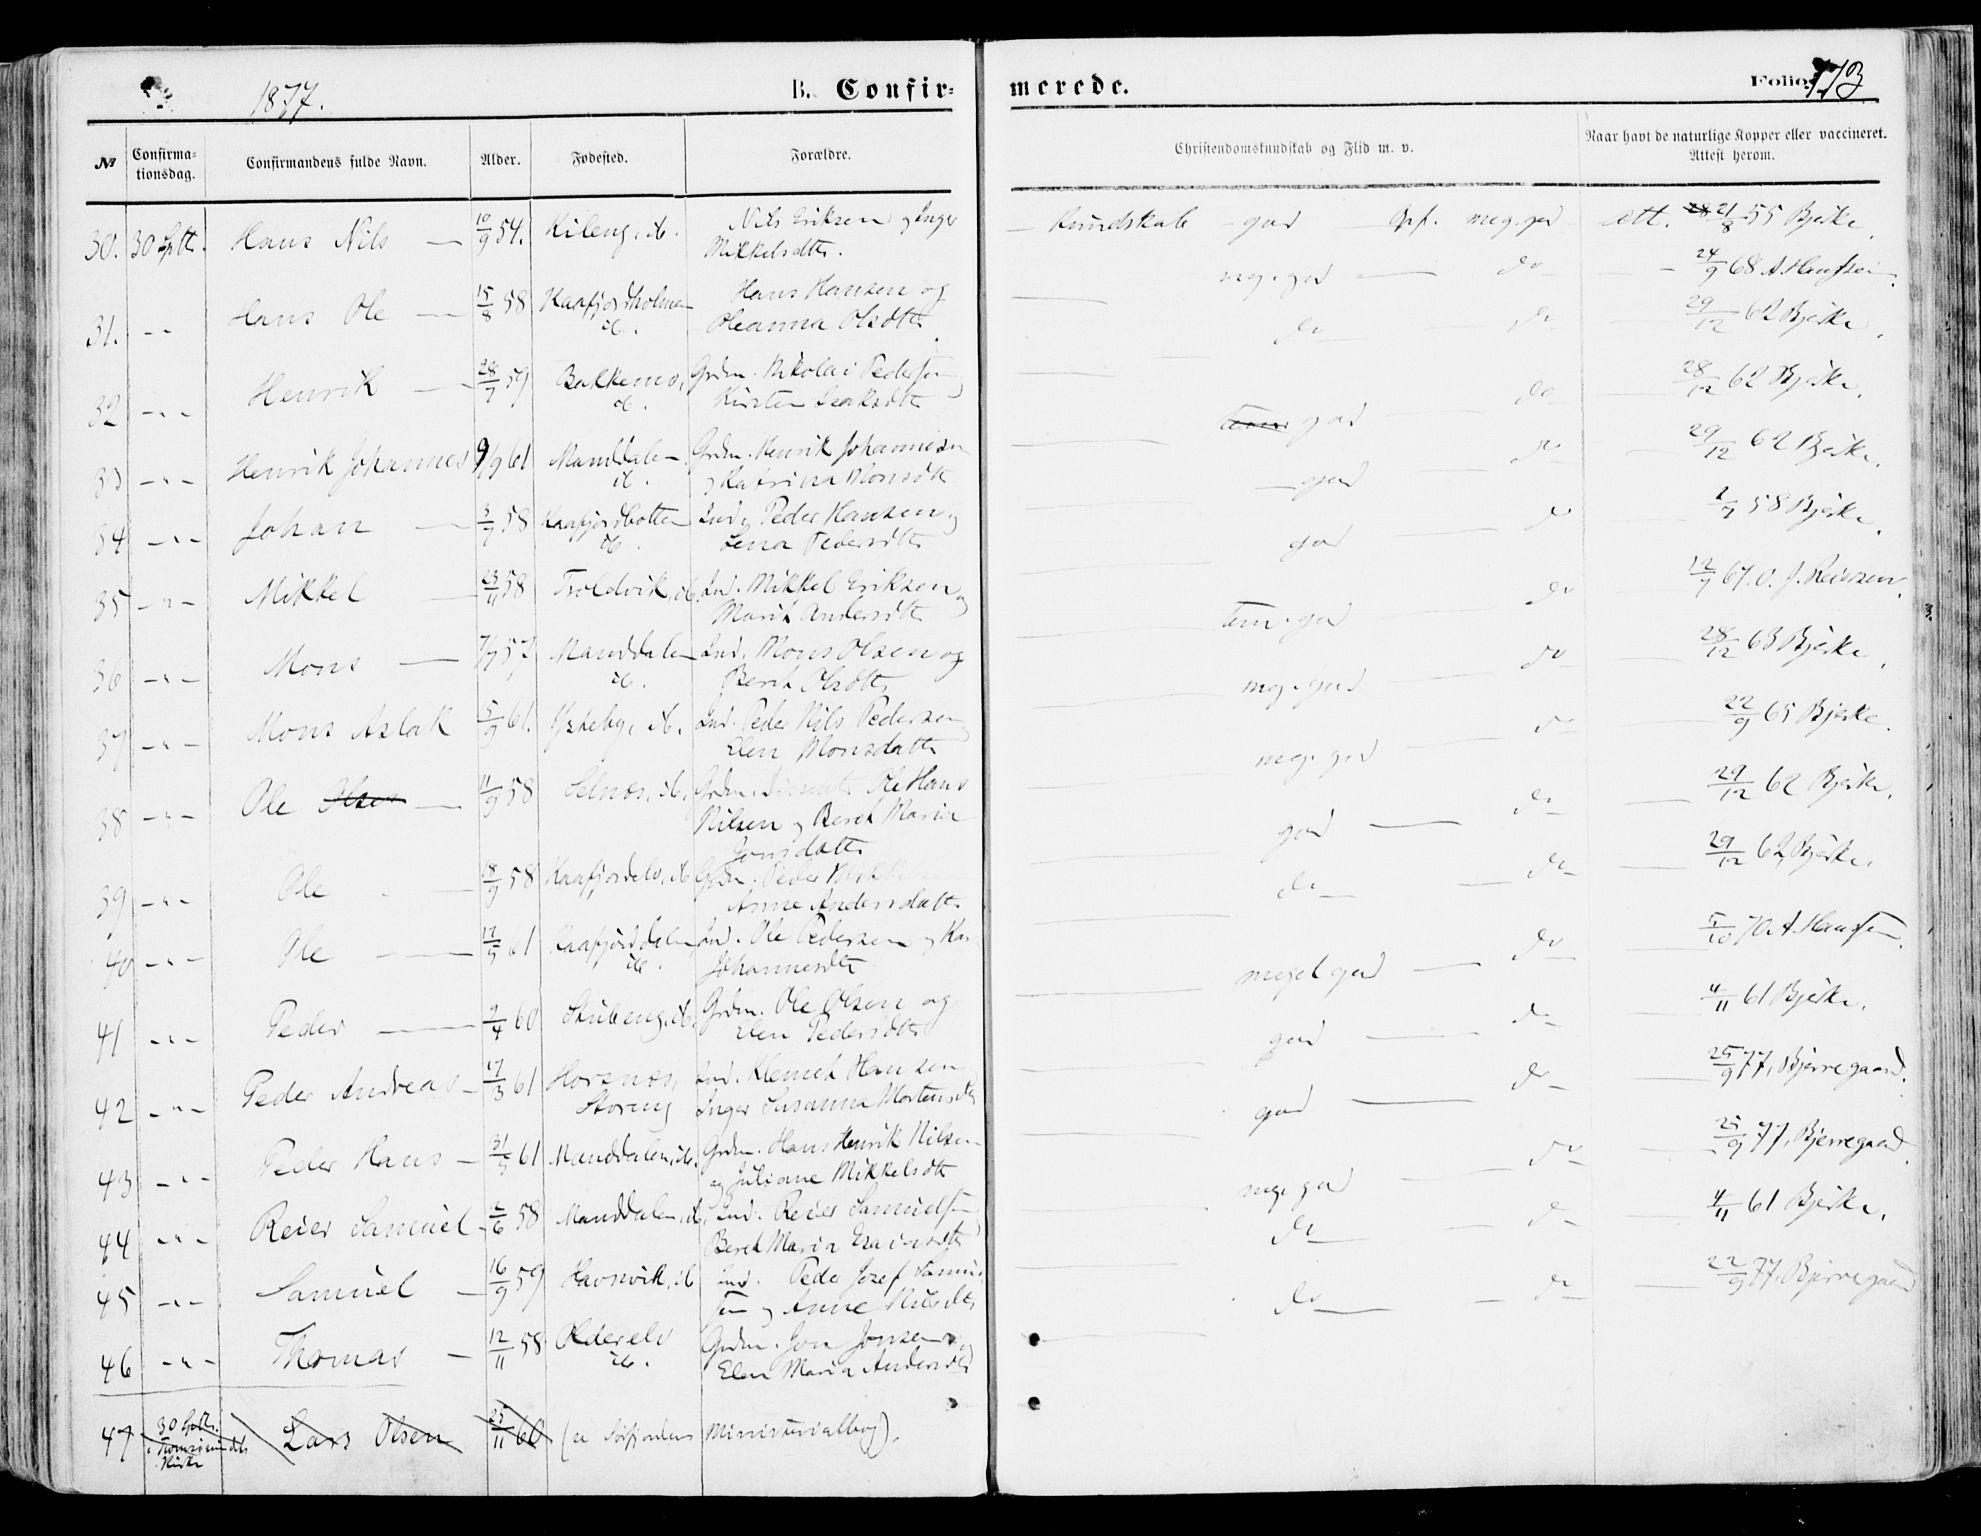 1877.
B. Confir=
merede.
Folio 173
№
Confirma=
tionsdag.
Confirmandens fulde Navn.
Alder.
Fødested.
Forældre.
Christendomskundskab og Flid m. v.
Naar havt de naturlige Kopper eller vaccineret.
Attest herom.
30. 30 Sptb. Hans Nils — 10/9 54. Kileng, ib. Nils Eriksen og Inger
Mikkelsdtr.
Kundskab – god Opf. meg. god – Att. 21/8 55 Bjerke.
31. - - Hans Ole — 15/8 58 Kaafjordholmen
ib.
Hans Hansen og
Oleanna Olsdtr.
meg. god — do — 24/9 68 A. Hanssen.
32 - " - Henrik — 28/7 59 Bakkemo,
ib.
Grdm. Nikolai Pedersen
Kirsten Isaksdtr
do — do — 29/12 62 Bjerke.
33 - " - Henrik Johannes 9/9 61 Manddalen
ib.
Grdm. Henrik Johannesen
og Katrina Monsdtr
god — do — 28/12 62 Bjerke.
34 - " - Johan — 3/7 58 Kaafjordbotten
ib.
Ind. Peder Hansen og
Lena Pedersdtr
god — do — 29/12 62 Bjerke.
35 - " - Mikkel — 23/11 58 Troldvik, ib. Ind. Mikkel Eriksen og
Marit Andersdtr
god — do — 58 Bjerke.
36 - " - Mons — 7/7 57 Manddalen
ib.
Ind. Mons Olsen og
Berit Olsdtr
tem. god — do — 12/9 67. O. J. Reiersen.
37 - " - Mons Aslak 5/9 61. Ysteby, ib. Ind. Peder Nils Pedersen
Elen Monsdatter
meg. god — do — 28/12 63 Bjerke.
38 - " - Ole Olsen — 11/9 58 Selnæs, ib. Grdm. Ole Hans
Nilsen og Berit Maria
Jonsdatter
meg. god — do — 22/9 65 Bjerke.
39 - " - Ole — 18/9 58 Kaafjordelv, ib. Grdm. Peder
Anne Andersdatter
god — do — 29/12 62 Bjerke.
40 - " - Ole — 17/5 61 Kaafjorddalen
ib.
Ind. Ole Pedersen og
Johannesdtr
do — do — 29/12 62, Bjerke.
41 - " - Peder — 9/4 60 Skibeng, ib. Grdm. Ole Olsen og
Elen Pedersdtr
meget god — do — 5/10 70. A. Hanssen.
42 - " - Peder Andreas — 17/3 61 Horsnæs,
Storeng
Ind. Klemet Hansen
Inger Susanna Mortensdtr
god — do — 4/11 61 Bjerke.
43 - " - Peder Hans — 31/5 61 Manddalen, ib. Grdm. Hans Henrik Nilsen
og Juliane Mikkelsdtr
god — do — 25/9 77, Bjerregaard.
44 - " - Reier Samuel — 2/6 58 Manddalen, ib. Ind. Reier Samuelsen
Berit Maria
meg. god — do — 25/9 77, Bjerregaard.
45 - " - Samuel — 16/9 59 Havnvik, ib Ind. Peder Josef
sen og Anne Nilsdtr
do — do — 4/11 61 Bjerke.
46 - " - Thomas — 12/11 58 Olderelv
ib.
Grdm. Jon Jonsen og
Elen Maria Andersdtr
do — do — 22/9 77, Bjerregaard
47 30 Sptb.
i Tromsøsundets
Kirke
Lars Olsen 25/11 60 (se Sørfjordens Ministerialbog).